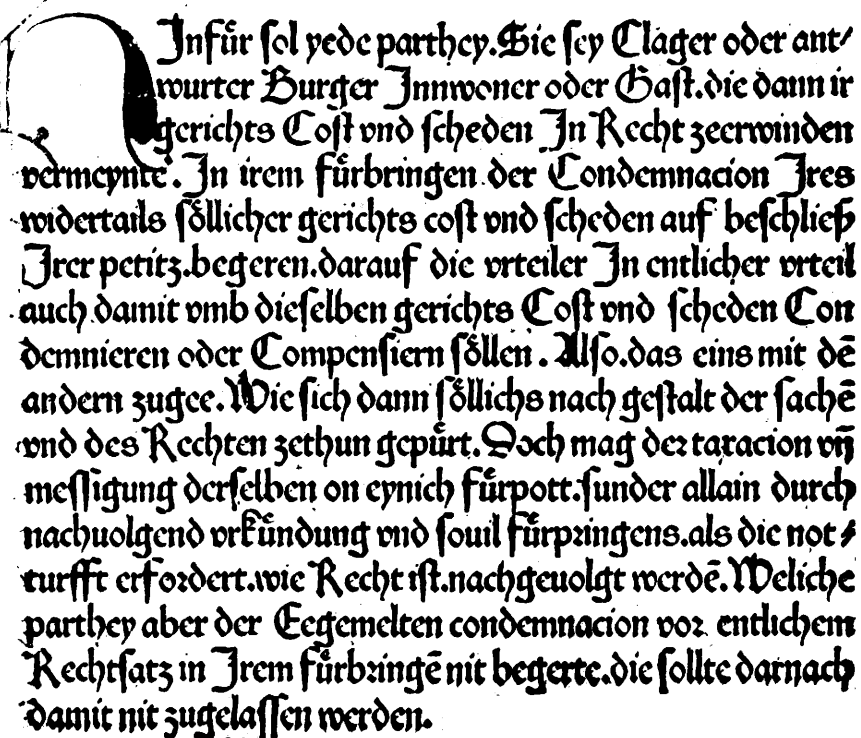 Infuͤr sol yede parthey. Sie sey Clager oder ant⸗
wurter Burger Innwoner oder Gast. die dann ir
gerichts Cost vnd scheden In Recht zeerwinden
vermeynte. In irem fuͤrbringen der Condemnacion Ires
widertails soͤllicher gerichts cost vnd scheden auf beschließ
Irer petitz. begeren. darauf die vrteiler In entlicher vrteil
auch damit vmb dieselben gerichts Cost vnd scheden Con
demnieren oder Compensiern soͤllen. Also. das eins mit dē
andern zugee. Wie sich dann soͤllichs nach gestalt der sachē
vnd des Rechten zethun gepuͤrt. Doch mag der taxacion vn̄
messigung derselben on eynich fuͤrpott. sunder allain durch
nachuolgend vrkuͤndung vnd souil fuͤrpringens. als die not⸗
turfft erfordert. wie Recht ist. nachgeuolgt werdē. Weliche
parthey aber der Eegemelten condemnacion vor entlichem
Rechtsatz in Irem fuͤrbringē nit begerte. die sollte darnach
damit nit zugelassen werden.